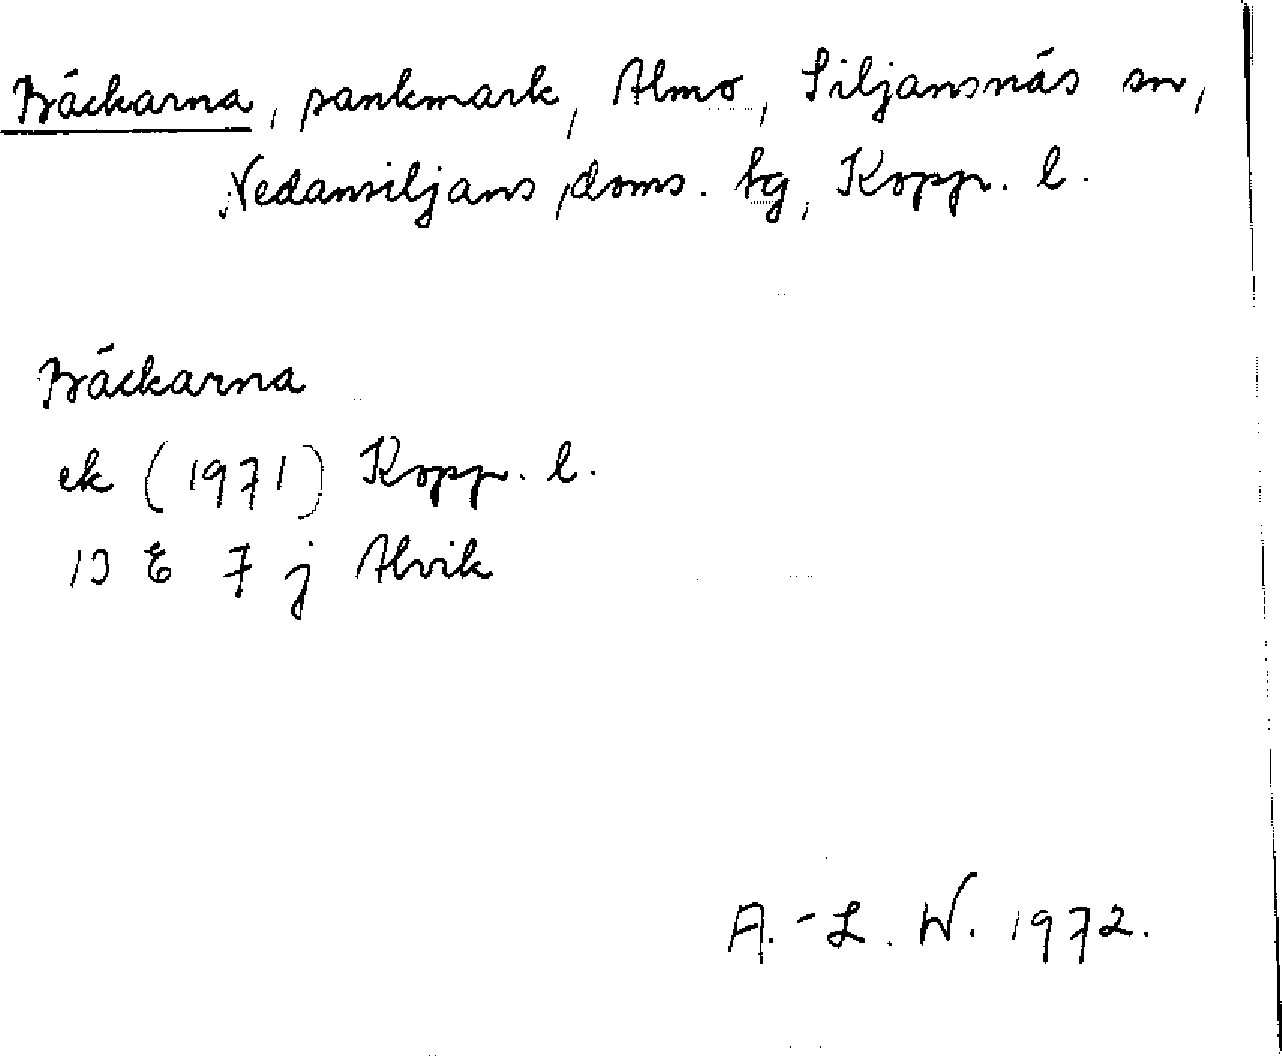 Bäckarna, sankmark, Almo, Siljansnäs sn,
Nedansiljans doms. tg, Kopp. l.
Bäckarna
ek (1971) Kopp. l.
13 E 7 j Alvik
A.-L. W. 1972.